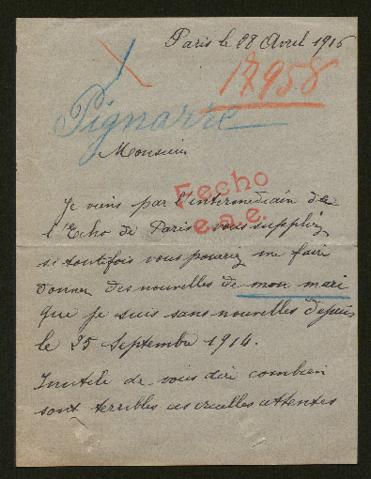 Paris le 28 Avril 1915
17958
Pignarre
Monsieur
Je viens par l'intermédiaire de
l'Echo de Paris vous supplier
Fecho
e.a.e.
si toutefois vous pouriez me faire
donner des nouvelles de mon mari
que je suis sans nouvelles depuis
le 25 Septembre 1914.
Inutile de vous dire combien
sont terribles ces cruelles attentes